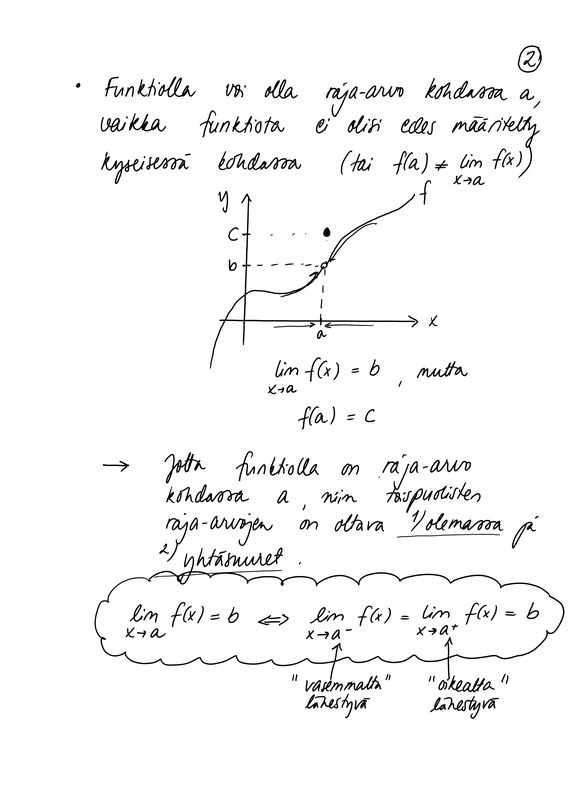 2
• Funktiolla voi olla raja-arvo kohdassa a,
vaikka funktiota ei olisi edes määritelty
kyseisessä kohdassa (tai f(a) ≠ lim f(x))
x→a
y
f
c
b
x
a
lim f(x) = b , mutta
x→a
f(a) = c
→ Jotta funktiolla on raja-arvo
kohdassa a, niin toispuolisten
raja-arvojen on oltava 1) olemassa ja
2) yhtäsuuret.
lim f(x) = b ⇔ lim f(x) = lim f(x) = b
x→a x→a⁻ x→a⁺
"vasemmalta" "oikealta"
lähestyvä lähestyvä